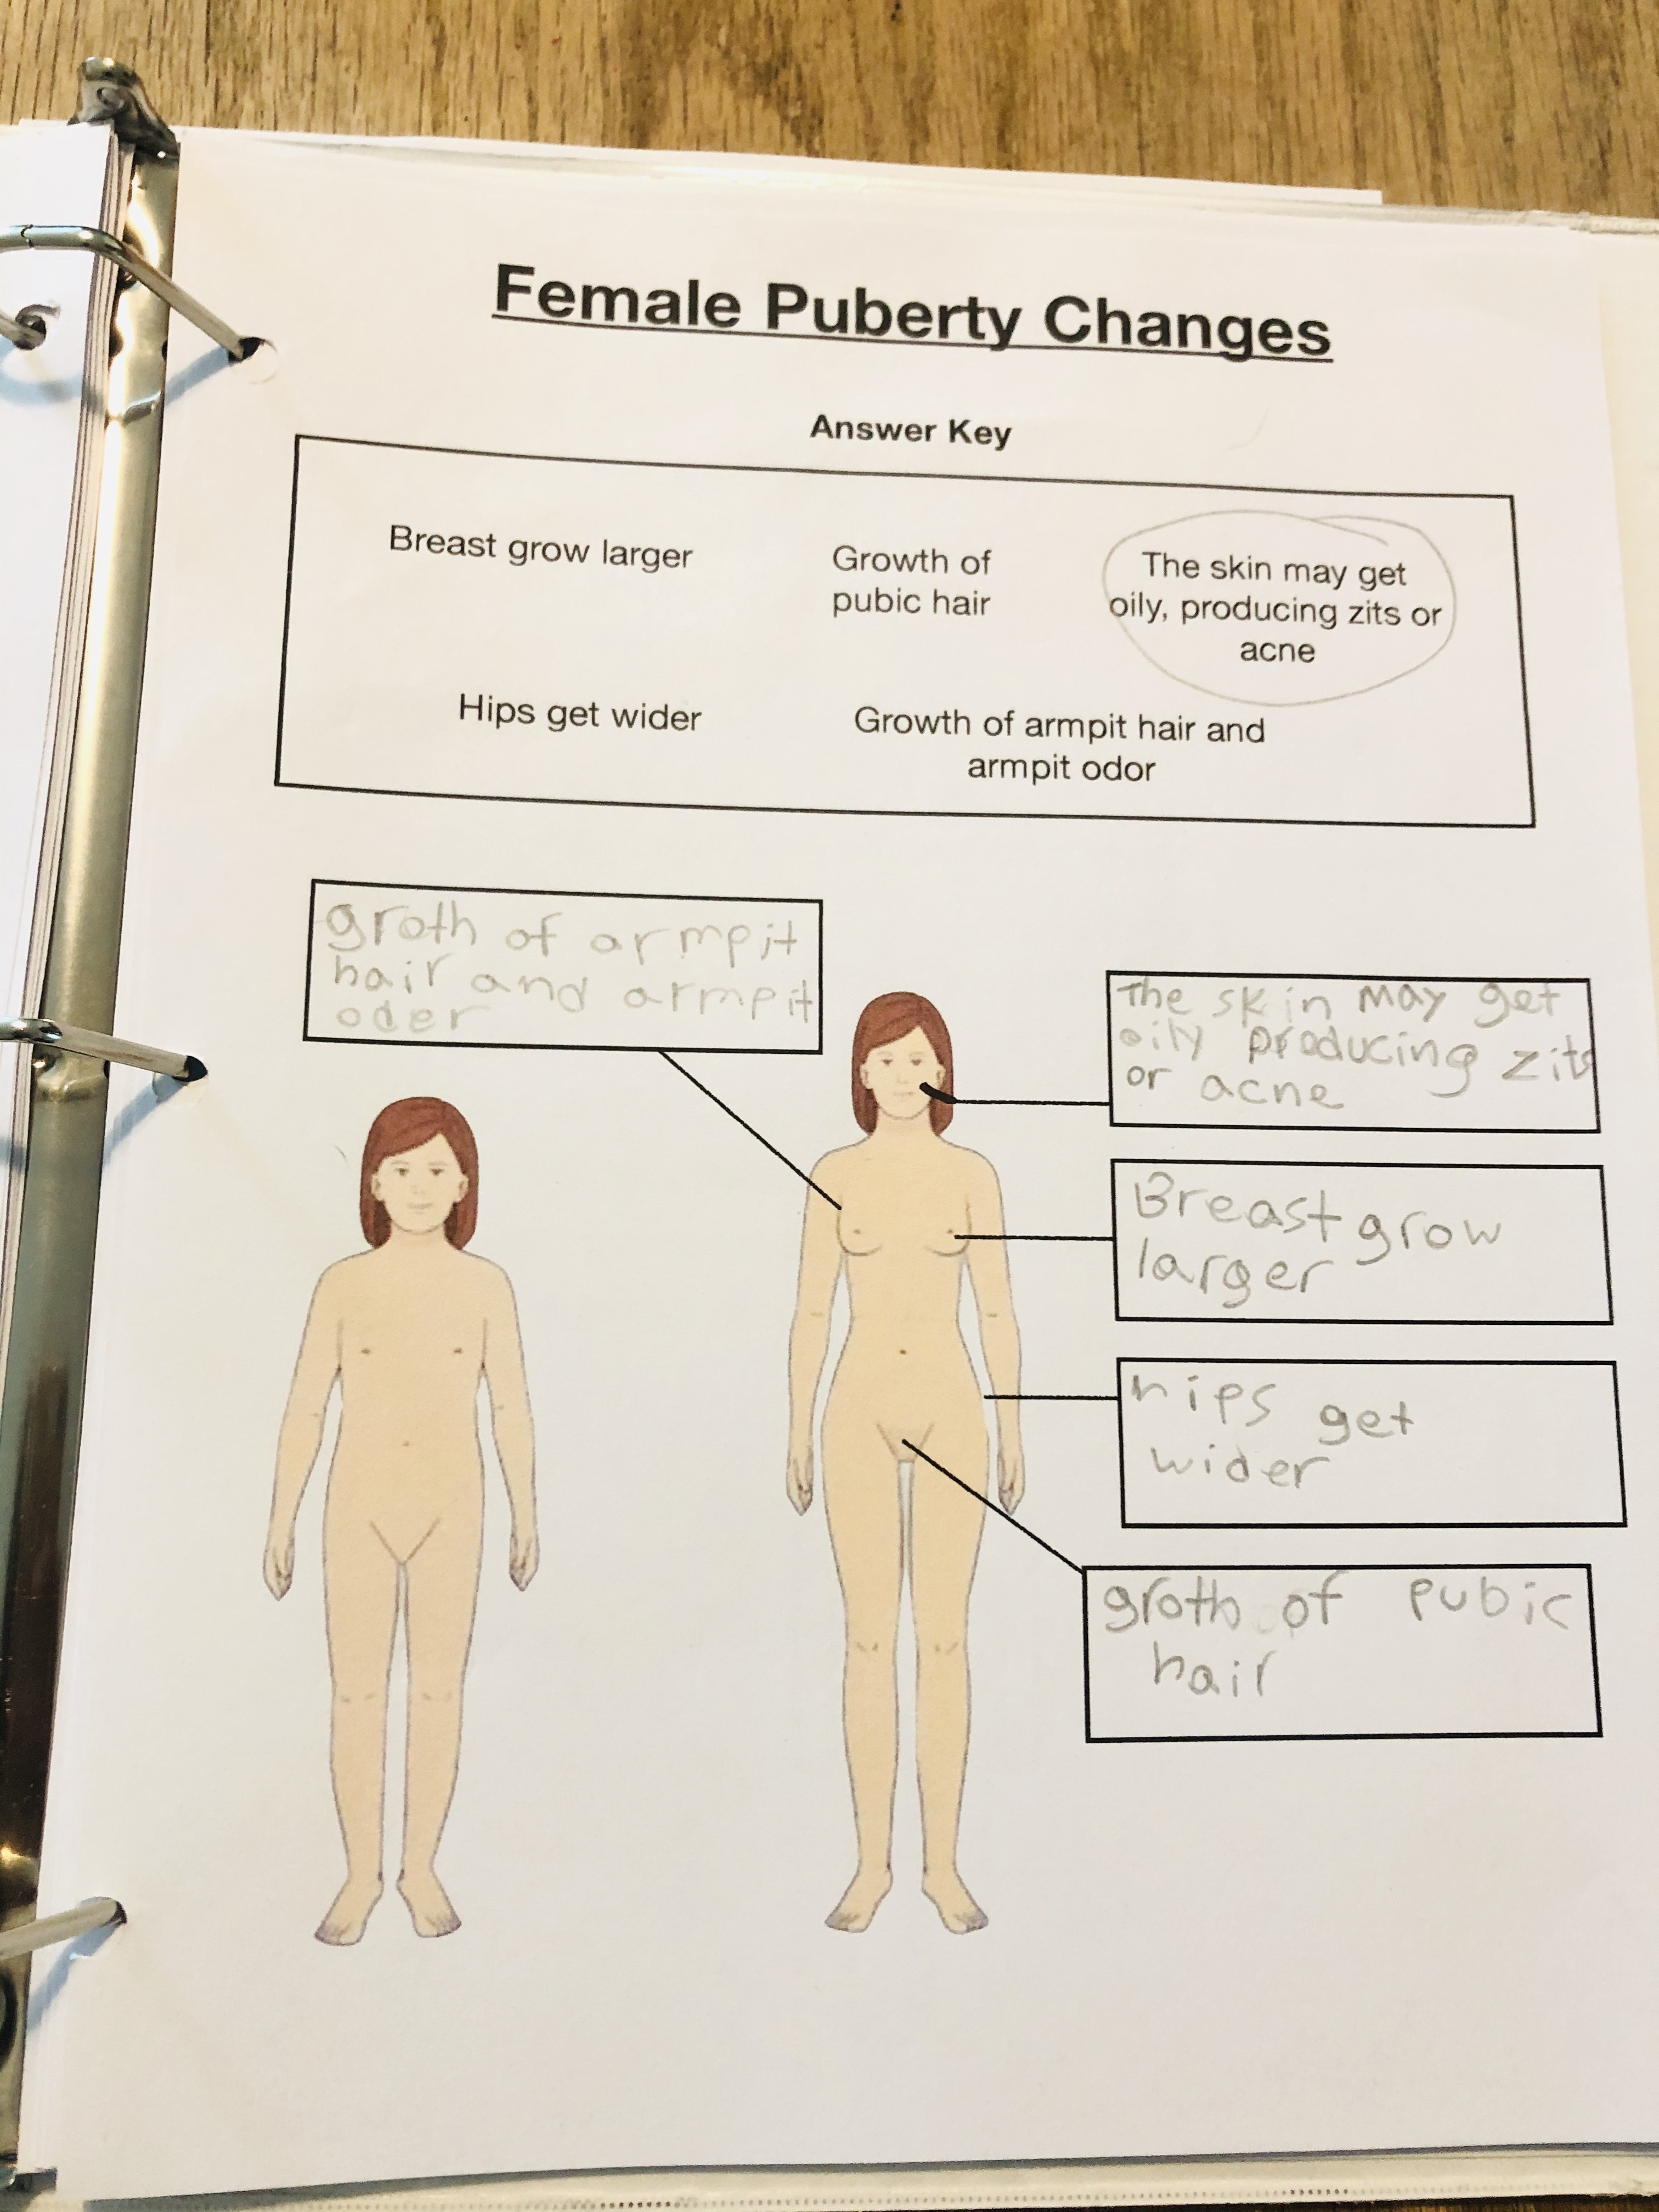 Female Puberty Changes
Answer Key
Breast grow larger
Growth of
pubic hair
The skin may get
oily, producing zits or
acne
Hips get wider
Growth of armpit hair and
armpit odor
groth of armpit
hair and armpit
oder
The skin may get
oily producing zits
or acne
Breast grow
larger
hips get
wider
groth of pubic
hair